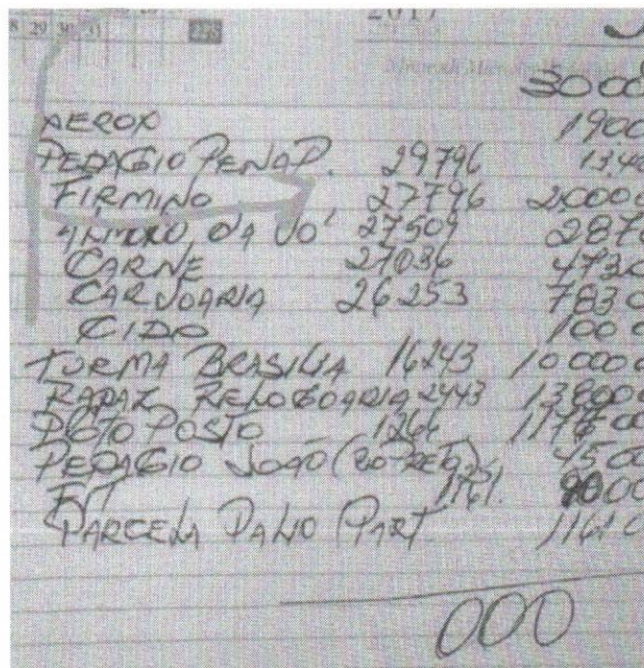 8 29 30 31 228
2017
3000
XEROX 190.0
PEDAGIO PENAP. 29796 13,4
FIRMINO 27796 2,000.0
DA VÓ 27509 2870
CARNE 27036 473.0
CARVOARIA 26253 783.0
CIDO 100.0
TURMA BRASILIA 16243 10 000.0
RAPAZ RELOGOARIA 2443 13800.0
POSTO 1266 1176.00
PEDAGIO JOÃO 45.00
1161. 90.00
PARCELA PALIO (PART 1161.0
000